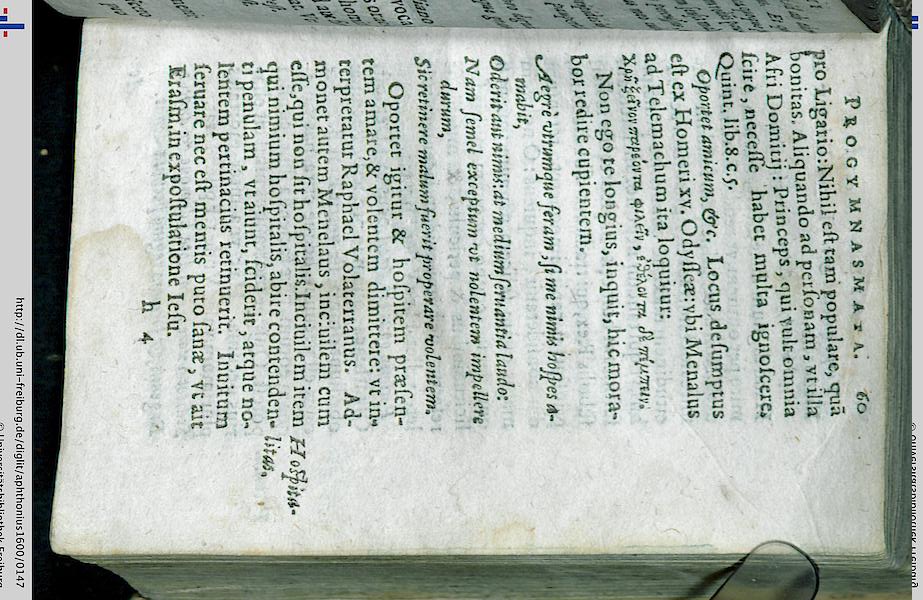 PROGYMNASMATA. 60
pro Ligario: Nihil est tam populare, quā
bonitas. Aliquando ad personam, vt illa
Afri Domitij: Princeps, qui vult omnia
scire, necesse habet multa ignoscere,
Quint. lib. 8. c. 5.
Oportet amicum, &c. Locus desumptus
est ex Homeri xv. Odyssææ: vbi Menalus
ad Telemachum ita loquitur:
Χρὴ ξεῖνον παρεόντα φιλεῖν, ἐθέλοντα δὲ πέμπειν.
Non ego te longius, inquit, hic mora-
bor redire cupientem.
Aegrè vtrumque feram, si me nimis hospes a-
mabit,
Oderit aut nimis: at medium seruantia laudo:
Nam semel exceptum vt nolentem impellere
durum,
Sic retinere malum fuerit properare volentem.
Oportet igitur & hospitem præsen-
tem amare, & volentem dimittere: vt in-
terpretatur Raphael Volaterranus. Ad-
monet autem Menelaus, inciuilem cum
esse, qui non sit hospitalis. Inciuilem item
qui nimium hospitalis, abire contenden-
ti penulam, vt aiunt, sciderit, atque no-
lentem pertinacius retinuerit. Inuitum
seruare nec est mentis puto sanæ, vt ait
Erasm. in expostulatione Iesu.
Hospita-
litas.
h 4
http://dl.ub.uni-freiburg.de/diglit/aphthonius1600/0147
© Universitätsbibliothek Freiburg